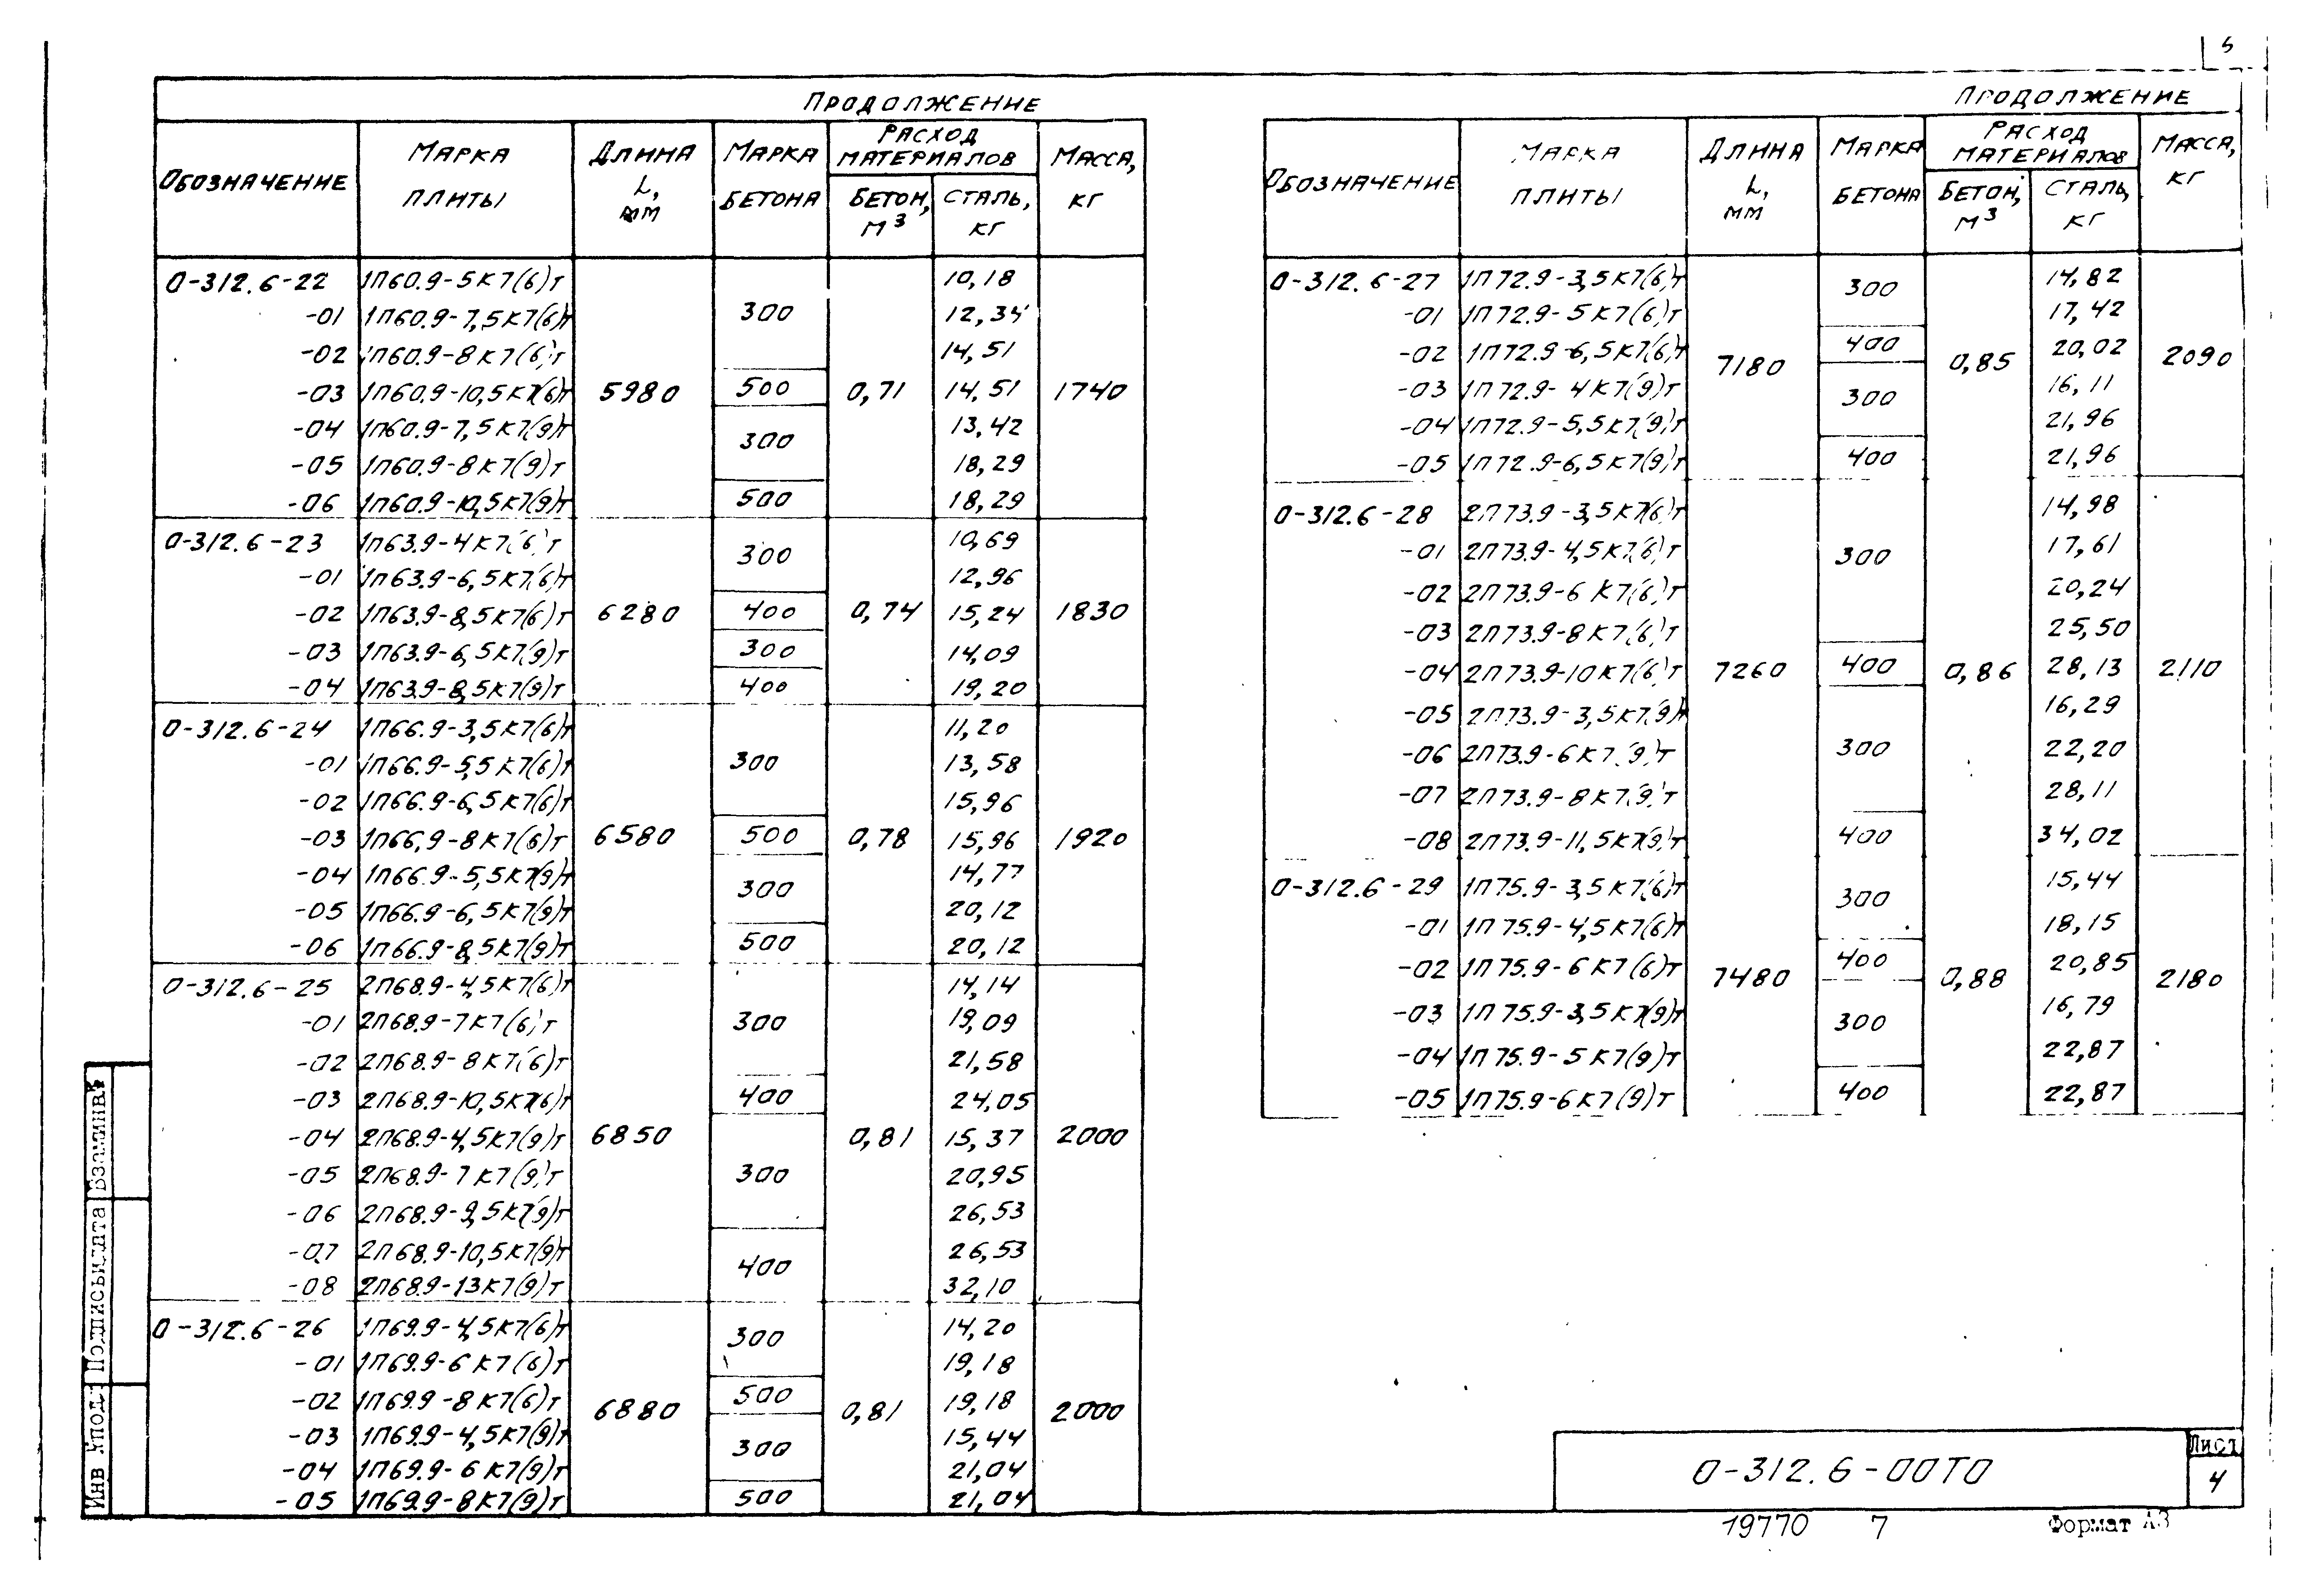 5
Продолжение
Обозначение | Марка плиты | Длина L, мм | Марка бетона | Расход материалов | Масса, кг
Бетон, м³ | Сталь, кг
0-312.6-22 1П60.9-5К7(6)т 300 10,18
-01 1П60.9-7,5К7(6)т 12,34
-02 1П60.9-8К7(6)т 14,51
-03 1П60.9-10,5К7(6)т 5980 500 0,71 14,51 1740
-04 1П60.9-7,5К7(9)т 300 13,42
-05 1П60.9-8К7(9)т 18,29
-06 1П60.9-10,5К7(9)т 500 18,29
0-312.6-23 1П63.9-4К7(6)т 300 10,69
-01 1П63.9-6,5К7(6)т 12,96
-02 1П63.9-8,5К7(6)т 6280 400 0,74 15,24 1830
-03 1П63.9-6,5К7(9)т 300 14,09
-04 1П63.9-8,5К7(9)т 400 19,20
0-312.6-24 1П66.9-3,5К7(6)т 11,20
-01 1П66.9-5,5К7(6)т 300 13,58
-02 1П66.9-6,5К7(6)т 15,96
-03 1П66,9-8К7(6)т 6580 500 0,78 15,96 1920
-04 1П66.9-5,5К7(9)т 300 14,77
-05 1П66.9-6,5К7(9)т 20,12
-06 1П66.9-8,5К7(9)т 500 20,12
0-312.6-25 2П68.9-4,5К7(6)т 14,14
-01 2П68.9-7К7(6)т 300 19,09
-02 2П68.9-8К7(6)т 21,58
-03 2П68.9-10,5К7(6)т 400 24,05
-04 2П68.9-4,5К7(9)т 6850 0,81 15,37 2000
-05 2П68.9-7К7(9)т 300 20,95
-06 2П68.9-9,5К7(9)т 26,53
-07 2П68.9-10,5К7(9)т 400 26,53
-08 2П68.9-13К7(9)т 32,10
0-312.6-26 1П69.9-4,5К7(6)т 300 14,20
-01 1П69.9-6К7(6)т 19,18
-02 1П69.9-8К7(6)т 6880 500 0,81 19,18 2000
-03 1П69.9-4,5К7(9)т 300 15,44
-04 1П69.9-6К7(9)т 21,04
-05 1П69.9-8К7(9)т 500 21,04
Продолжение
Обозначение | Марка плиты | Длина L, мм | Марка бетона | Расход материалов | Масса, кг
Бетон, м³ | Сталь, кг
0-312.6-27 1П72.9-3,5К7(6)т 300 14,82
-01 1П72.9-5К7(6)т 17,42
-02 1П72.9-6,5К7(6)т 7180 400 0,85 20,02 2090
-03 1П72.9-4К7(9)т 300 16,11
-04 1П72.9-5,5К7(9)т 21,96
-05 1П72.9-6,5К7(9)т 400 21,96
0-312.6-28 2П73.9-3,5К7(6)т 14,98
-01 2П73.9-4,5К7(6)т 300 17,61
-02 2П73.9-6К7(6)т 20,24
-03 2П73.9-8К7(6)т 25,50
-04 2П73.9-10К7(6)т 7260 400 0,86 28,13 2110
-05 2П73.9-3,5К7(9)т 16,29
-06 2П73.9-6К7(9)т 300 22,20
-07 2П73.9-8К7(9)т 28,11
-08 2П73.9-11,5К7(9)т 400 34,02
0-312.6-29 1П75.9-3,5К7(6)т 300 15,44
-01 1П75.9-4,5К7(6)т 18,15
-02 1П75.9-6К7(6)т 7480 400 0,88 20,85 2180
-03 1П75.9-3,5К7(9)т 300 16,79
-04 1П75.9-5К7(9)т 22,87
-05 1П75.9-6К7(9)т 400 22,87
Инв №подл. Подпись и дата Взам инв №
0-312.6-00ТО
Лист
4
19770 7 Формат А3